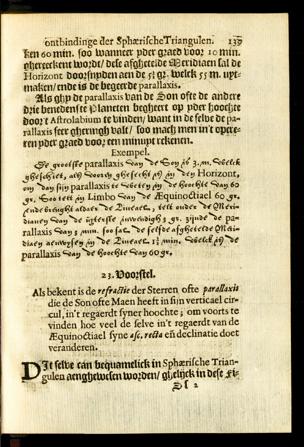 ontbindinge der Sphærische Triangulen. 139
ken 60 min. soo wanneer yder graed voor 10 min.
gherekent wordt/ dese afgheleide Meridiaen sal de
Horizont doorsnyden aen de 5½ gr. welck 55 m. uyt-
maken/ ende is de begeerde parallaxis.
Als ghy de parallaxis van de Son ofte de andere
drie benedenste Planeten begheert op yder hoochte
door t Astrolabium te vinden/ want in de selve de pa-
rallaxis seer gheringh valt/ soo mach men in t opere-
ren yder graed voor een minuyt rekenen.
Exempel.
De grootste parallaxis van de Son is 3. m. welck
gheschiet, als vooren gheseght is in den Horizont,
om dan sijn parallaxis te weten in de hoochte van 60
gr. Soo telt in Limbo van de Æquinoctiael 60 gr.
ende brenght aldaer de Lineael, telt onder de Meri-
diaen van de uyterste inwendigh 3 gr. zijnde de pa-
rallaxis van 3 min. soo sal de selfde afgheleide Meri-
diaen aenwysen in de Lineael 1½ min. welck is de
parallaxis van de hoochte van 60 gr.
23. Voorstel.
Als bekent is de refractie der Sterren ofte parallaxis
die de Son ofte Maen heeft in sijn verticael cir-
cul, in't regaerdt syner hoochte; om voorts te
vinden hoe veel de selve in't regaerdt van de
Æquinoctiael syne asc. recta en declinatie doet
veranderen.
Dit selve can bequamelick in Sphærische Trian-
gulen aenghewesen worden/ ghelijck in dese Fi-
S 2